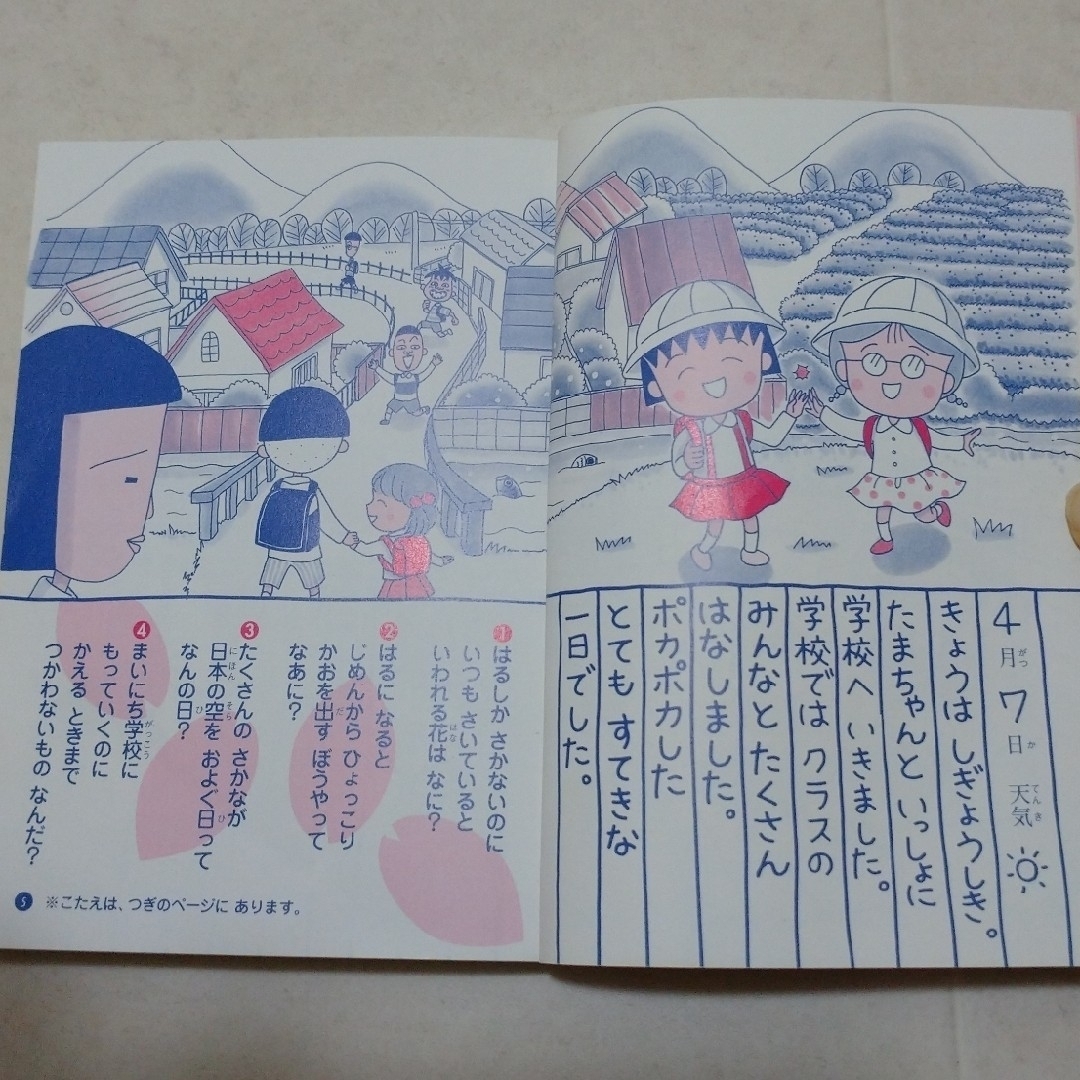 4月7日 天気
がつ か てんき
きょうは しぎょうしき。
たまちゃんと いっしょに
学校へ いきました。
学校では クラスの
みんなと たくさん
はなしました。
ポカポカした
とても すてきな
一日でした。
1 はるしか さかないのに
いつも さいていると
いわれる花は なに?
はな
2 はるに なると
じめんから ひょっこり
かおを出す ぼうやって
だ
なあに?
3 たくさんの さかなが
日本の空を およぐ日って
にほん そら ひ
なんの日?
ひ
4 まいにち学校に
がっこう
もっていくのに
かえる ときまで
つかわないもの なんだ?
5
※こたえは、つぎのページに あります。